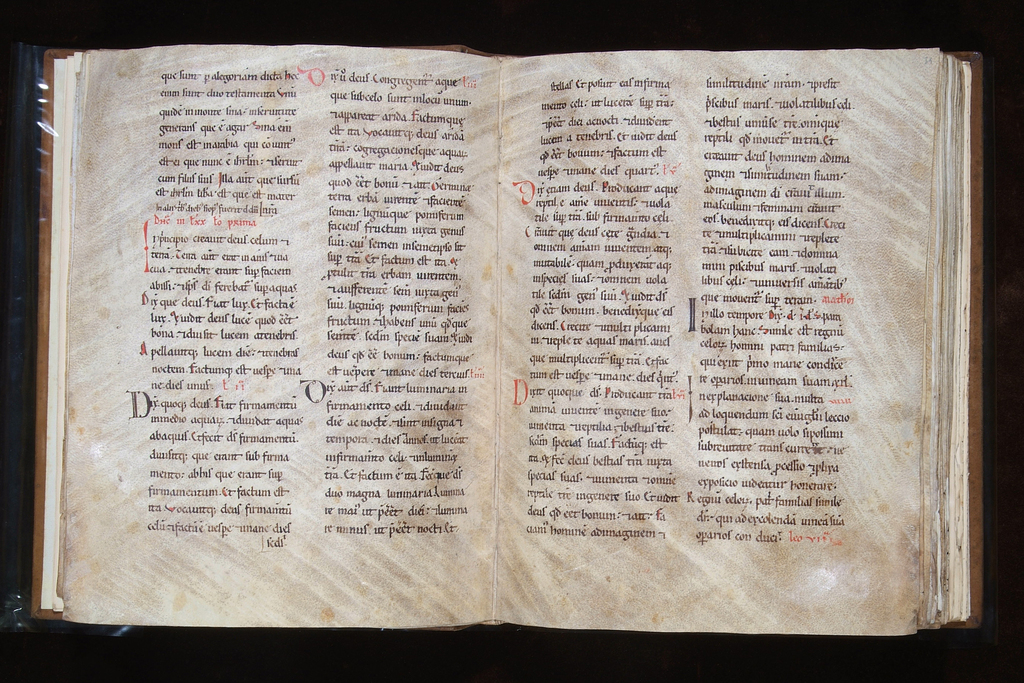 que sunt p alegoriam dicta hec
enim sunt duo testamenta Vnu
quidē inmonte sina inseruitute
generans que ē agar Sina eni
mons est inarabia qui
est ei que nunc ē ihrlm seruit
cum filiis suis Illa aut que sursū
est ihrlm libā est que est mater
Dn̄ic in lxx lc̄o prima
In principio creauit deus celum ⁊
terrā Terra aut erat inanis ⁊ua
cua ⁊tenebre erant sup faciem
abissi ⁊sp̄s dī ferebat̄ sup aquas
Dix̄ que deus Fiat lux Et facta ē
lux Et uidit deus lucē quod eēt
bona ⁊diuisit lucem atenebris
Appellauitq; lucem diē ⁊tenebras
noctem Factumq; est uespe ⁊ma
ne dies unus
Dix̄ quoq; deus Fiat firmamentū
inmedio aquaꝝ ⁊diuidat aquas
abaquis Et fecit ds̄ firmamentū
diuisitq; que erant sub firma
mento abhis que erant sup
firmamentum Et factum est
ita Vocauitq; deus firmamtū
celū ⁊factū ē uespe ⁊mane dies
scds̄
Dix̄ ū deus Congregent̄ aque
que subcelo sunt inlocū unum
⁊appareat arida Factumque
est ita Vocauitq; deus aridā
trām congregationesque aquaꝝ
appellauit maria Et uidit deus
quod eēt bonū ⁊ait Germinet
terra erbā uirente ⁊facientē
semen lignūque pomiferum
faciens fructum iuxta genus
suū cui semen insemetipso sit
sup trā Et factum est ita Et
ptulit trā erbam uirentem
⁊aufferentē sem̄ iuxta gen̄
suū lignūq; pomiferum faciēs
fructum ⁊habens unū qdque
sentē scdm specie suam Et uidit
deus qd eē bonum factumque
est uespere ⁊mane dies tercius
Dix̄ aut ds̄ Fiant luminaria in
firmamento celi ⁊diuidant
diē ac noctē ⁊sint insigna ⁊
tempora ⁊dies ⁊annos ut luceāt
infirmāto celi ⁊inluminēt
trā Et factum ē ita Fecitque ds̄
duo magna luminaria Lumina
re maiꝰ ut peēt diei ⁊lumina
re minus ut peēt nocti Et
stellas Et posuit eas infirma
mento celi ut lucerēt sup trā
⁊peēt diei acnocti ⁊diuiderēt
lucem a tenebris Et uidit deus
qd eēt bonum ⁊factum est
uespe ⁊mane dies quartꝰ
Dix̄ etiam deus Producant aque
reptile anime uiuentis ⁊uola
tile sup trā sub firmamto celi
Creauit que deus cete grādia ⁊
omnem animam uiuentem atq;
mutabilē quam pduxerāt aq;
inspecies suas ⁊omnem uola
tile scdm gen̄ suū Et uidit ds̄
qd eēt bonum benedixitque eis
dicens Crescite ⁊multiplicami
ni ⁊replete aquas maris auesq;
que multiplicent̄ sup trā Et fac
tum est uespe ⁊mane dies qīntꝰ
Dixit quoque ds̄ Producant trā
animā uiuentē ingenere suo
iumenta ⁊reptilia ⁊bestias tre
scdm species suas Factūq; est
ita Et fec̄ deus bestias trē iuxta
species suas ⁊iumenta ⁊omne
reptile trē ingenere suo Et uidit
deus qd eet bonum ⁊ait Fa
ciam̄ hominē adimaginem ⁊
similitudinē nrām ⁊presit
piscibus maris ⁊uolatilibus celi
⁊bestiis uniuse trē omique
reptili qd mouet̄ in trā Et
creauit deus hominem adima
ginem ⁊similitudinem suam
adimaginem dī creauit illum
masculum ⁊feminam creauit
eos benedixitq; eis dicens Cresci
te ⁊multiplicamini ⁊replete
trā ⁊subicite eam ⁊domina
mini piscibus maris ⁊uolati
libus celi ⁊uniuersis animātib;
que mouent̄ sup terram
In illo tempore Dix̄
bolam hanc Simile est regnū
celoꝝ homini patri familias
qui exiit p̄mo mane condūce
re oparios inuineam suam
In explanatione sua multa
ad loquendum sci euuḡlii leccio
postulat quam uolo si possum
subreuitate transcurrere ne
uenos extensa pcessio ⁊plixa
exposicio uideatur honerare
Regnū celoꝝ pat̄ familias simile
dī qui ad excolendā uineā suā
oparios con ducit